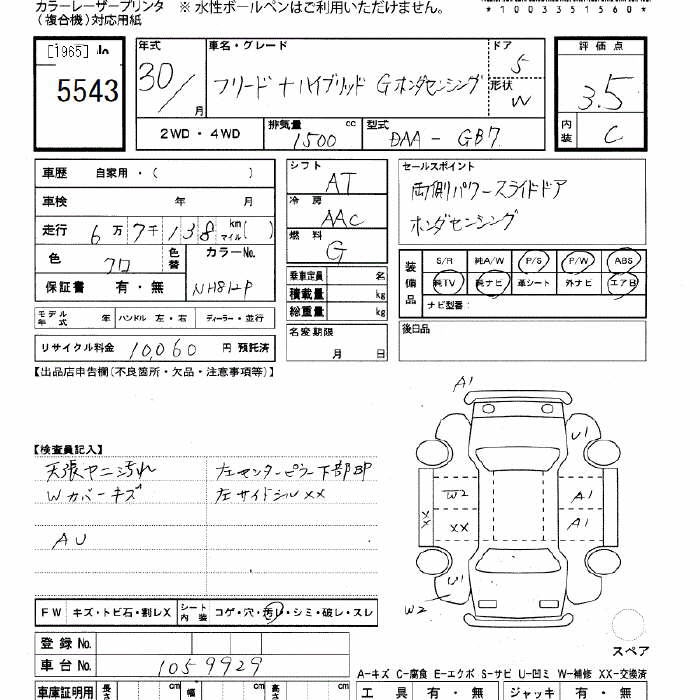 カラーレーザープリンタ ※ 水性ボールペンはご利用いただけません。
(複合機)対応用紙
*1003351560*
[1965]
5543
年式 車名・グレード ドア 評価点
30/ 月 フリード+ハイブリッド G ホンダセンシング 5 3.5
形状 W
2WD・4WD 排気量 1500 cc 型式 DAA-GB7 内装 C
車歴 自家用・( ) シフト AT セールスポイント
車検 年 月 冷房 AAC 両側パワースライドドア
走行 6万7千138 km マイル( ) 燃料 G ホンダセンシング
色 クロ 色替 カラーNo. NH812P
保証書 有・無
乗車定員 名
積載量 kg
総重量 kg
装備品 S/R 純A/W P/S P/W ABS
純TV 純ナビ 革シート 外ナビ エアB
ナビ型番:
モデル年式 年 ハンドル 左・右 ディーラー・並行
名変期限 月 日
後日品
リサイクル料金 10,060 円 預託済
【出品店申告欄(不良箇所・欠品・注意事項等)】
A1
【検査員記入】 U1
天張ヤニ汚れ 左センターピラー下部BP
Wカバーキズ 左サイドシルXX
W2 A1
XX XX A1
AU
U1
W2
FW キズ・トビ石・割レX シート内装 コゲ・穴・汚レ・シミ・破レ・スレ
スペア
登録No.
車台No. 1059929
A-キズ C-腐食 E-エクボ S-サビ U-凹ミ W-補修 XX-交換済
車庫証明用 長さ cm 幅 cm 高さ cm 工具 有・無 ジャッキ 有・無